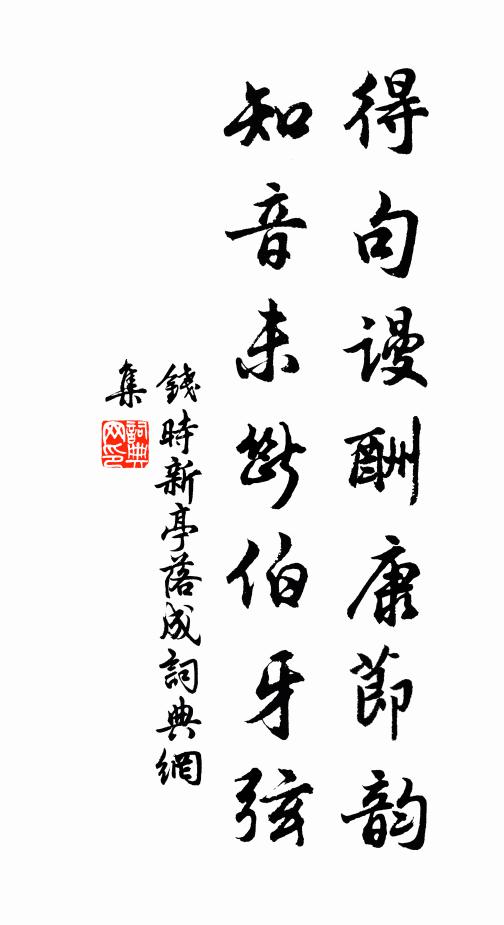 得句謾酬康節韵
知音未斷伯牙弦
錢時新亭落成詞典網
集
詞典
网印